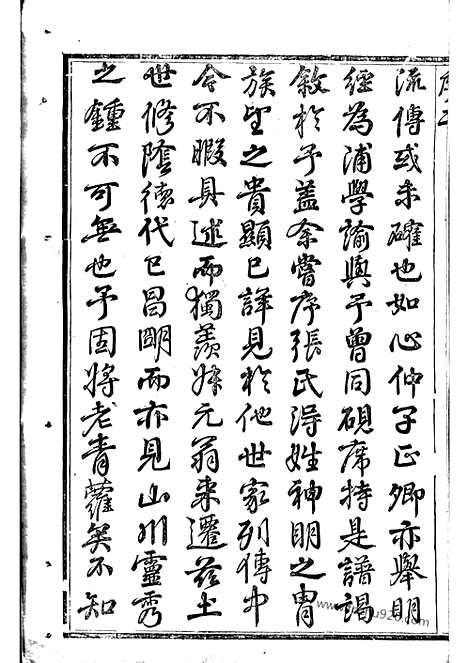 序二
流傳或未確也如心仲子正卿亦舉明
經為浦學諭與予曾同硯席持是譜謁
敘於予蓋余嘗序張氏得姓神明之胄
族望之貴顯已詳見於他世家列傳中
今不暇具述而獨羨姝元翁來遷茲土
世修陰德代已昌明而亦見山川靈秀
之鍾不可無也予固將老青蘿矣不知